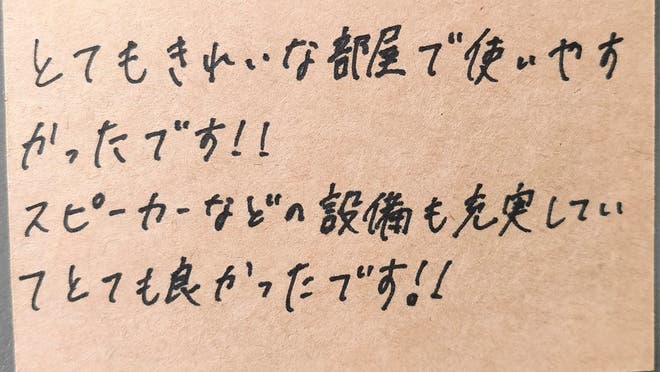 とてもきれいな部屋で使いやす
かったです!!
スピーカーなどの設備も充実してい
てとても良かったです!!